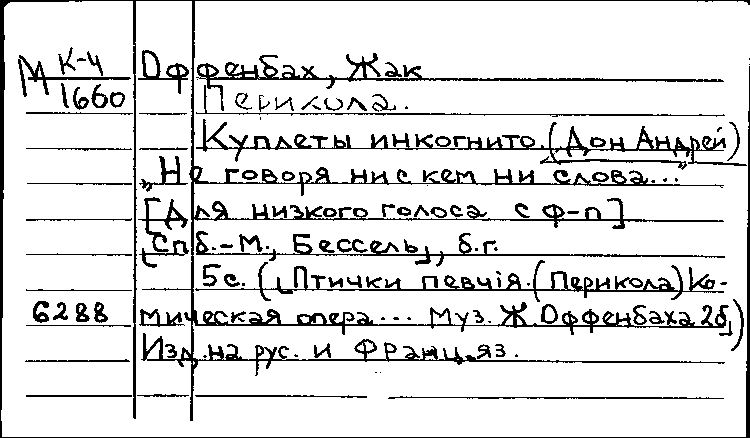 М К-4 Оффенбах, Жак
1660 Перикола.
Куплеты инкогнито. (Дон Андрей)
„Не говоря ни с кем ни слова..."
[Для низкого голоса с ф-п]
[Спб.-М., Бессель], б.г.
5с. ([Птички певчія. (Перикола) Ко-
6288 мическая опера... Муз. Ж. Оффенбаха 26])
Изд. на рус. и франц. яз.